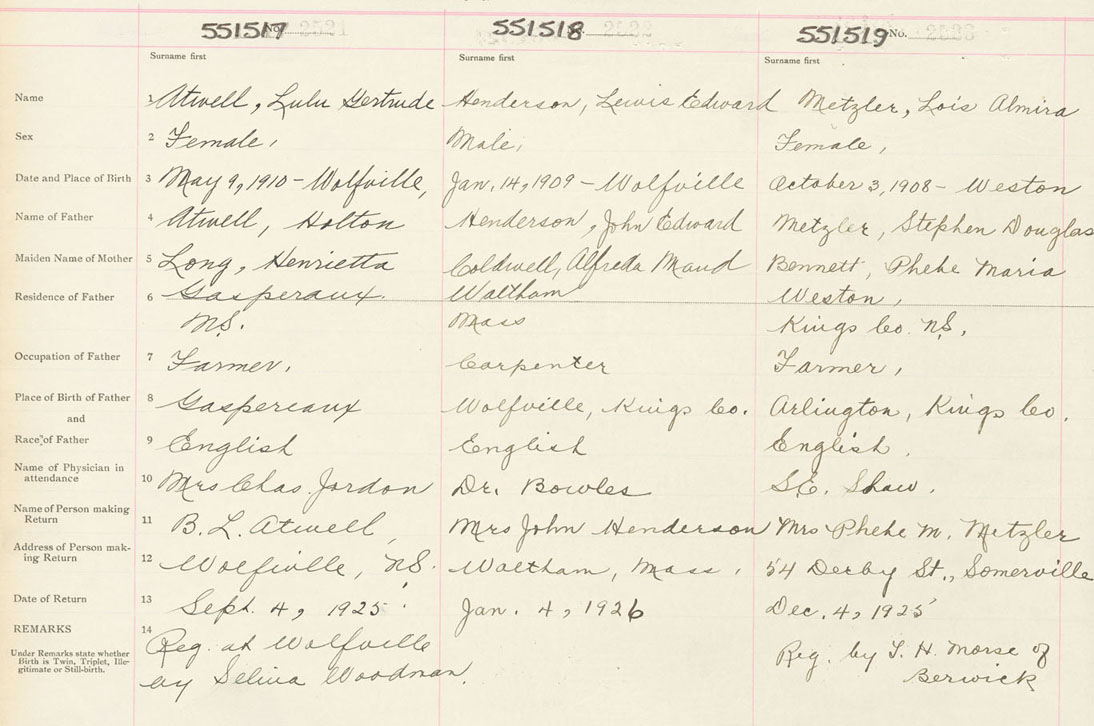 551517 No. 2521 551518 2522 551519 No. 2523
Surname first Surname first Surname first
Name 1 Atwell, Lulu Gertrude Henderson, Lewis Edward Metzler, Lois Almira
Sex 2 Female, Male, Female,
Date and Place of Birth 3 May 9, 1910 - Wolfville, Jan. 14, 1909 - Wolfville October 3, 1908 - Weston
Name of Father 4 Atwell, Holton Henderson, John Edward Metzler, Stephen Douglas
Maiden Name of Mother 5 Long, Henrietta Coldwell, Alfreda Maud Bennett, Phebe Maria
Residence of Father 6 Gasperaux Waltham Weston,
N.S. Mass Kings Co. N.S.
Occupation of Father 7 Farmer, Carpenter Farmer,
Place of Birth of Father 8 Gaspereaux Wolfville, Kings Co. Arlington, Kings Co.
and
Race of Father 9 English English English.
Name of Physician in
attendance 10 Mrs Chas. Jordon Dr. Bowles S.E. Shaw.
Name of Person making
Return 11 B. L. Atwell, Mrs John Henderson Mrs Phebe M. Metzler
Address of Person mak-
ing Return 12 Wolfville, N.S. Waltham, Mass. 54 Derby St., Somerville
Date of Return 13 Sept. 4, 1925 Jan. 4, 1926 Dec. 4, 1925
REMARKS 14
Under Remarks state whether
Birth is Twin, Triplet, Ille-
gitimate or Still-birth.
Reg. at Wolfville
by Selina Woodman.
Reg. by T. H. Morse of
Berwick